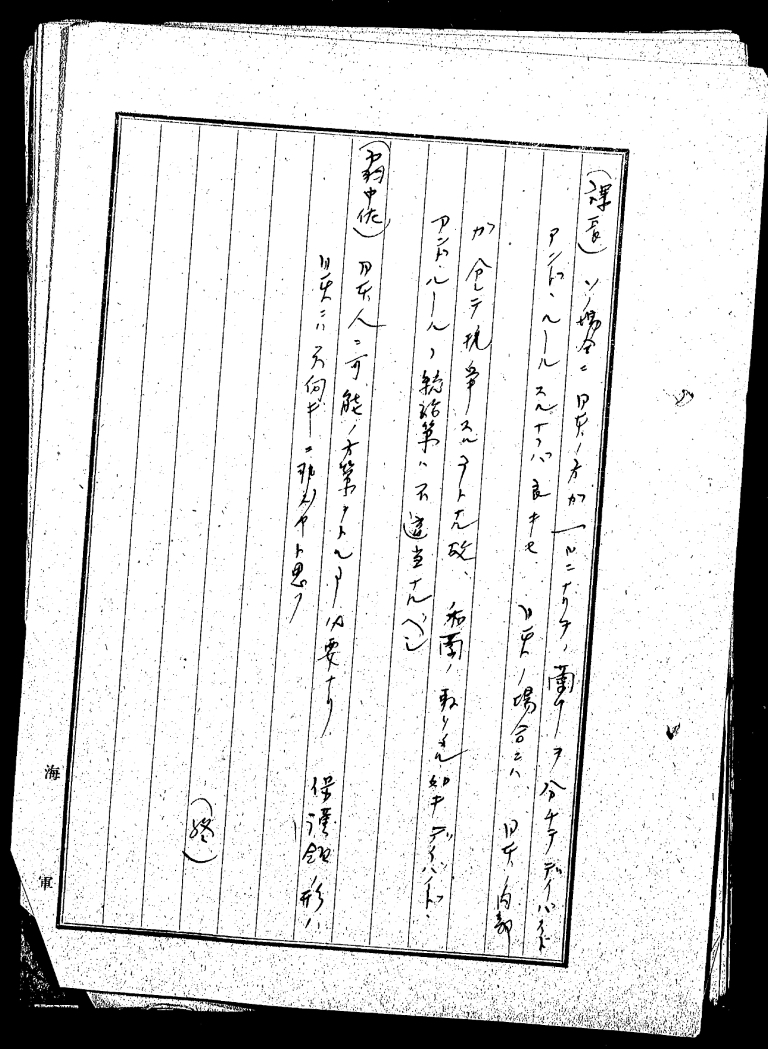 (課長) ソノ場合ニ日本ノ方ガ一ツニナリテ、蘭印ヲ分チテデイバイド
アンド・ルールスルナラバ良キモ 日本ノ場合ニハ、日本ノ内部
ガ分レテ抗争スルコトトナル故、和蘭ノ取リタル如キデイバイド・
アンド・ルールノ統治策ハ不適当ナルベシ
中佐) 日本人ニ可能ノ方策ヲトルコト必要ナリ 保護領ノ形ハ
日本ニハ不向キニ非ズヤト思フ
(終)
海軍